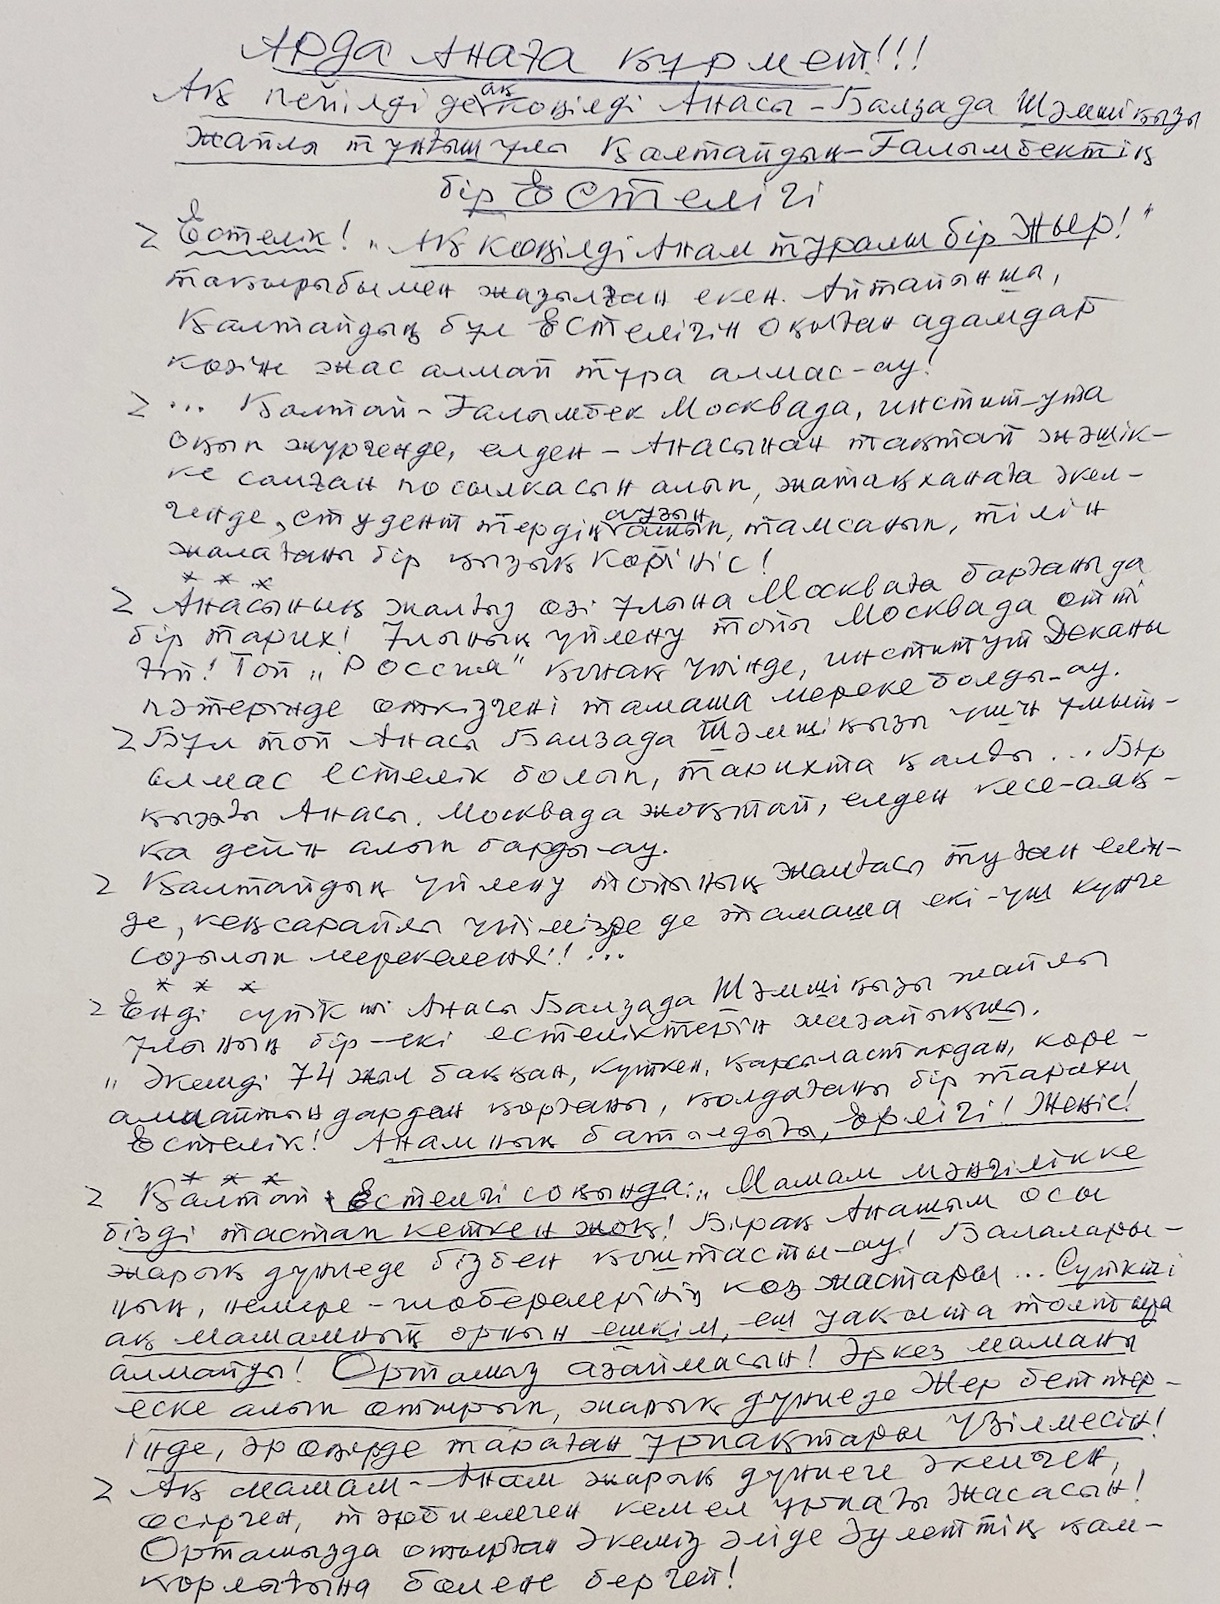 Арда Анаға құрмет!!!
Ақ пейілді де ақ көңілді Анасы - Балзада Шәмшіқызы
жайлы тұңғыш ұлы Қалтайдың-Ғалымбектің
бір Естелігі
Естелік! „Ақ көңілді Анам туралы бір Жыр!"
тақырыбымен жазылған екен. Айтайыншы,
Қалтайдың бұл Естелігін оқыған адамдар
көзіне жас алмай тұра алмас-ау!
... Қалтай-Ғалымбек Москвада, институтта
оқып жүргенде, елден - Анасынан тақтай жәшік-
ке салған посылкасын алып, жатақханаға әкел-
генде, студенттердің аузын ашып, тамсанып, тілін
жалағаны бір қызық көрініс!
* * *
Анасының жалғыз өзі ұлына Москваға барғаны да
бір тарих! Ұлының үйлену тойы Москвада өтті
ғой! Той „Россия" қонақ үйінде, институт Деканы
пәтерінде өткізгені тамаша мереке болды-ау.
Бұл той Анасы Балзада Шәмшіқызы үшін ұмыт-
алмас естелік болып, тарихта қалды... Бір
қызығы Анасы, Москвада жоқтай, елден кесе-аяқ-
қа дейін алып барды-ау.
Қалтайдың үйлену тойының жалғасы туған елін-
де, кең сарайлы үйімізде де тамаша екі-үш күнге
созылып мерекеленді! ...
* * *
Енді сүйікті Анасы Балзада Шәмшіқызы жайлы
ұлының бір-екі естеліктерін жазайықшы.
„Әкемді 74 жыл баққан, күткен, қарсыластардан, көре-
алмайтындардан қорғаны, қолдағаны бір тарихи
Естелік! Анамның батылдығы, Ерлігі! Жеңіс!
* * *
Қалтай Естелігі соңында: „Мамам мәңгілікке
бізді тастап кеткен жоқ! Бірақ Анашым осы
жарық дүниеде бізбен қоштасты-ау! Балалары-
ның, немере-шөберелерінің көз жастары... Сүйікті
ақ мамамның орнын ешкім, еш уақытта толтыра
алмайды! Ортамыз азаймасын! Әркез маманы
еске алып отырып, жарық дүниеде Жер беттер-
інде, әр өңірде тараған ұрпақтары Үзілмесін!
Ақ мамам-Анам жарық дүниеге әкелген,
өсірген, тәрбиелеген кемел ұрпағы Жасасын!
Ортамызда отырған Әкеміз әліде Әулеттің қам-
қорлығына бөлене бергей!